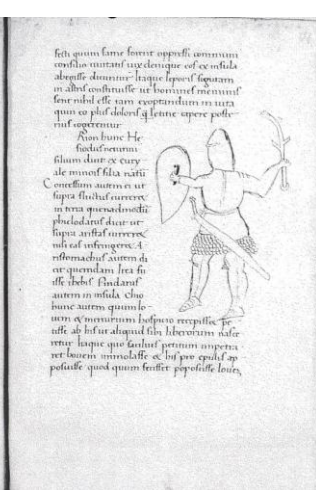 festi quum fame forent oppressi communi
consilio mutatis vix denique eos ex insula
abegisse dicuntur itaque leporis figuram
in astris constituisse ut homines meminis
sent nihil esse tam exoptandum in uita
quin eo plus doloris q letitie capere poste
rius cogerentur
Rion hunc He
siodus neptuni
filium dicit ex eury
ale minois filia natū
Concessum autem ei ut
supra fluctus curreret
in terra quemadmodū
phiclo datus dicit ut
supra aristas curreret
nili eas infringeret A
ristomachus autem di
cit quemdam hrea fu
isse thebis Pindarus
autem in insula Chio
hunc autem quum io
uem & mercurium hospicio recepisset pe
tisse ab his ut aliquid sibi liberorum nasce
retur itaque quo facilius petitum impetra
ret bouem immolasse & his pro epulis ap
posuisse quod quum fecisset poposcisse iouem